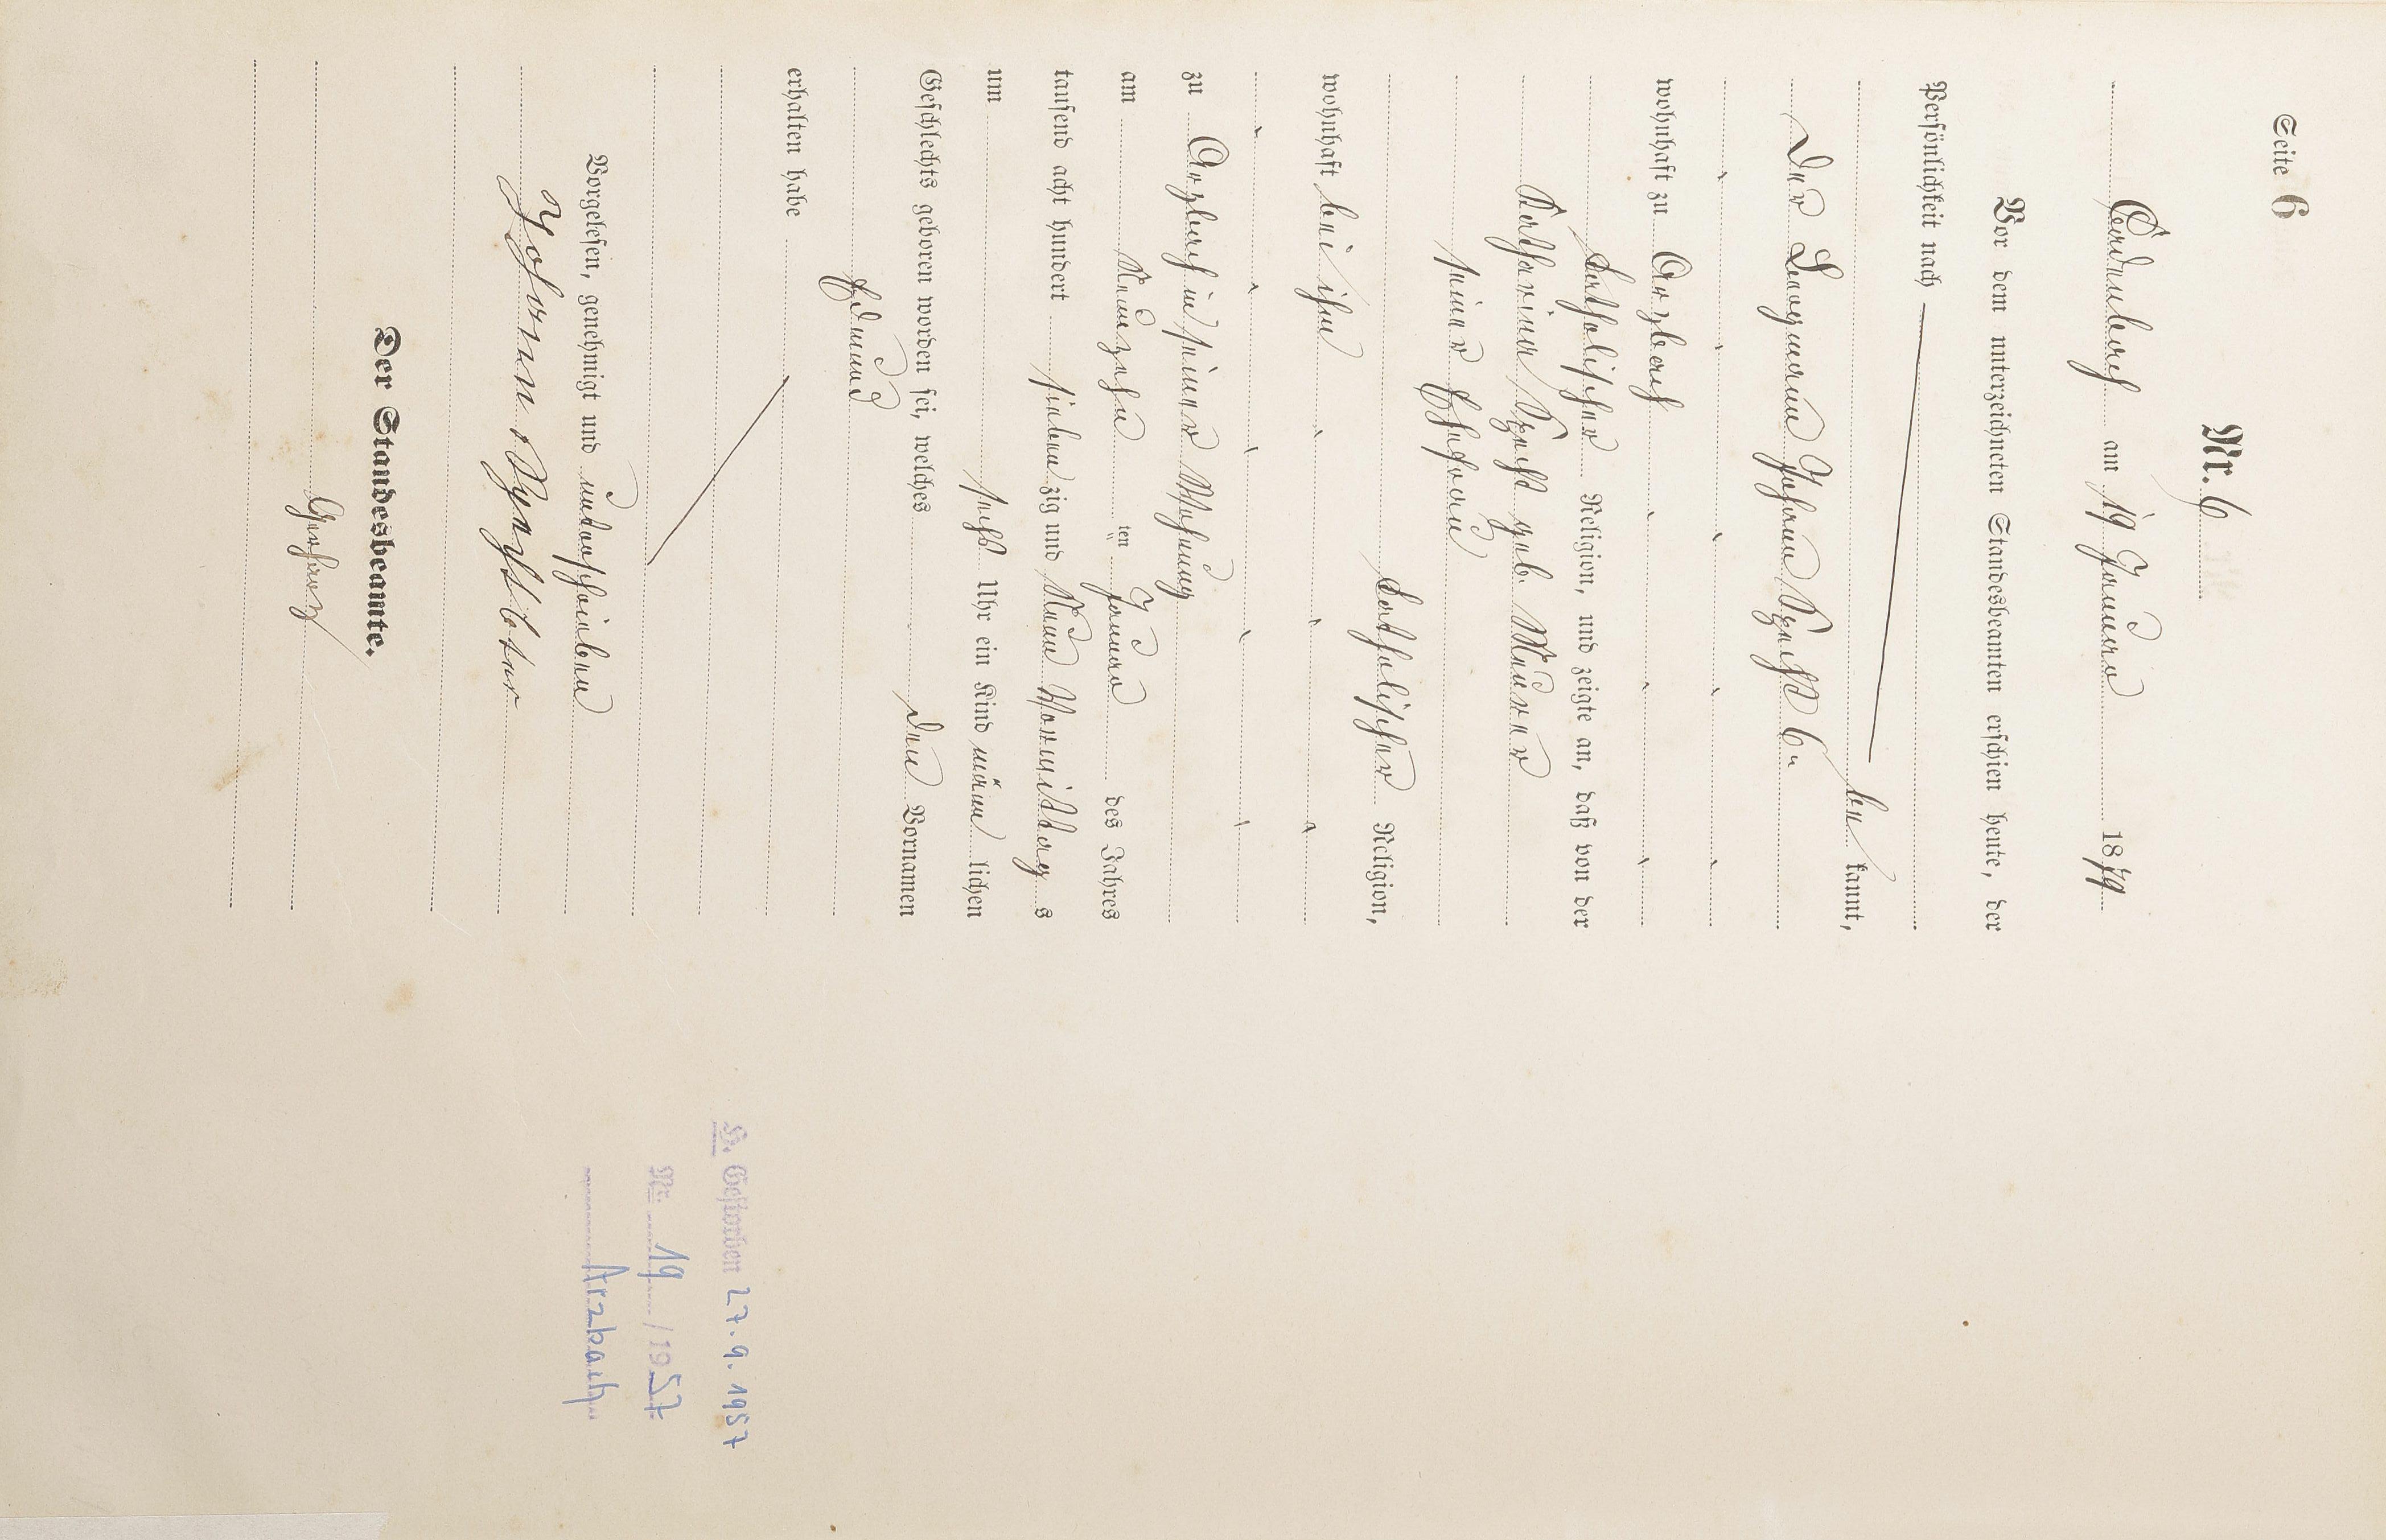 Seite 6
Nr. 6
Cadenbach am 19 Januar 1879
Vor dem unterzeichneten Standesbeamten erschien heute, der
Persönlichkeit nach
be kannt,
der Bergmann Johann
wohnhaft zu Arzbach
katholischer Religion, und zeigte an, daß von der
Katharina geb. Meurer
seiner Ehefrau
katholischer Religion,
wohnhaft bei ihm
zu Arzbach in seiner Wohnung
am Neunzehn ten Januar des Jahres
tausend acht hundert sieben zig und Neun Vormittag s
um sechs Uhr ein Kind männ lichen
Geschlechts geboren worden sei, welches den Vornamen
Edmund
erhalten habe
Vorgelesen, genehmigt und unterschrieben
Johann
Der Standesbeamte.
H. Gestorben 27.9.1957
Nr. 19 / 1957
Arzbach